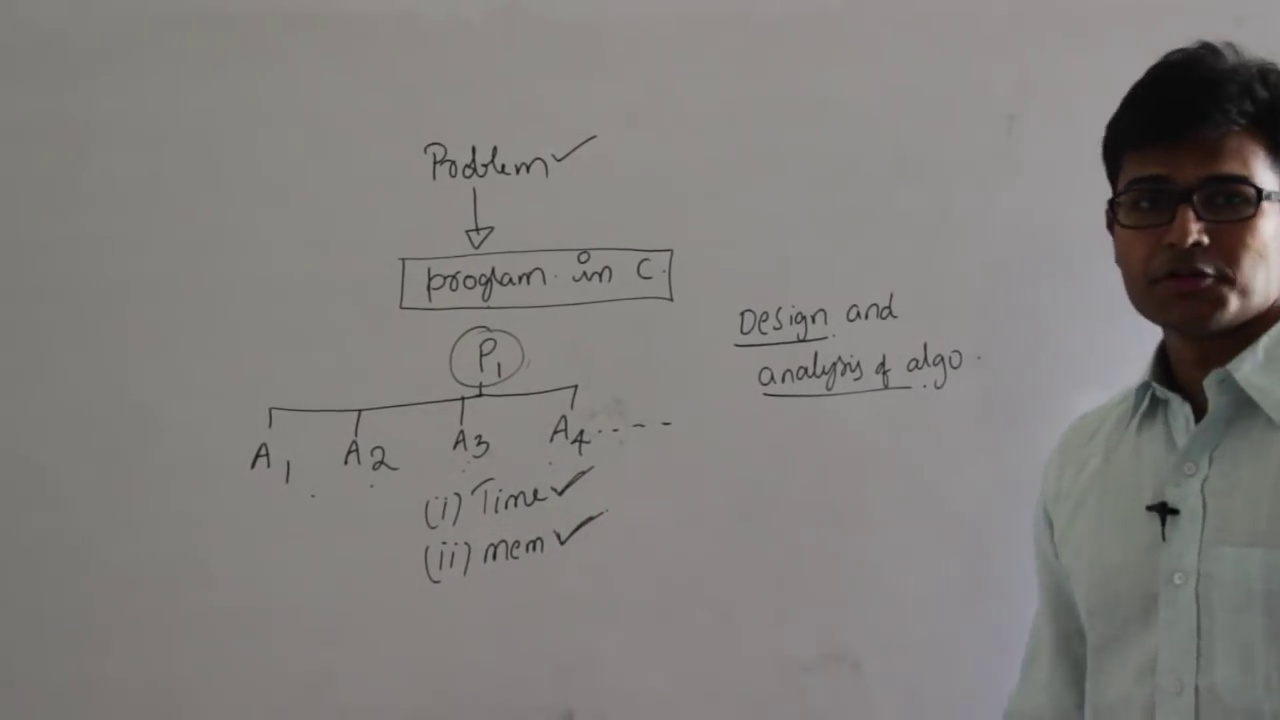 Problem ✓
program in C.
P1
A1 A2 A3 A4 ----
(i) Time ✓
(ii) mem ✓
Design and
analysis of algo.